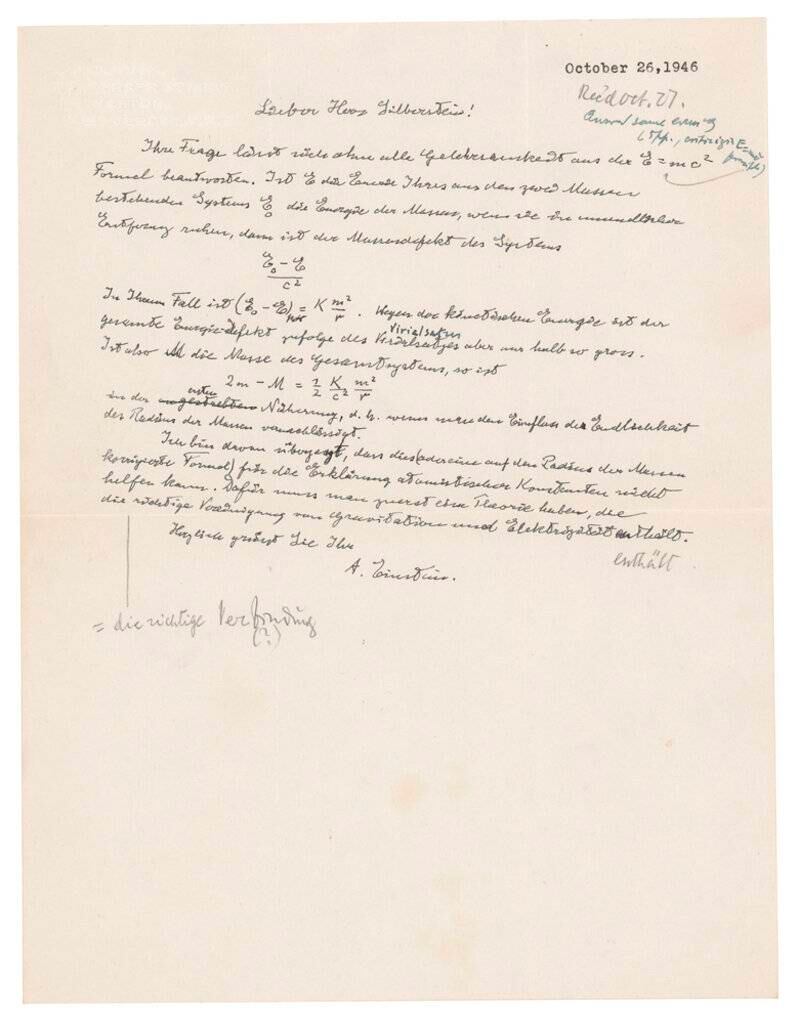 October 26,1946
Rec'd oct. 27.
Lieber Herr Silberstein!
Ihre Frage lässt sich ohne alle Gelehrsamkeit aus der E = mc²
Formel beantworten. Ist E die Energie Ihres aus den zwei Massen
bestehenden Systems E₀ die Energie der Massen, wenn sie in unendlicher
Entfernung ruhen, dann ist der Massendefekt des Systems
E₀ − E
c²
In Ihrem Fall ist (E₀ − E) = K m²/r . Wegen der kinetischen Energie ist der
Virialsatzes
gesamte Energiedefekt zufolge des Virialsatzes aber nur halb so gross.
Ist also M die Masse des Gesamtsystems, so ist
2m − M = 1/2 K/c² m²/r
ersten
in der Näherung, d. h. wenn man den Einfluss der Endlichkeit
des Radius der Massen vernachlässigt.
Ich bin davon überzeugt, dass dies (oder eine auf den Radius der Massen
korrigierte Formel) für die Erklärung atomistischer Konstanten nicht
helfen kann. Dafür muss man zuerst eine Theorie haben, die
die richtige Vereinigung von Gravitation und Elektrizität enthält.
enthält
Herzlich grüsst Sie Ihr
A. Einstein.
= die richtige Verbindung
(?)